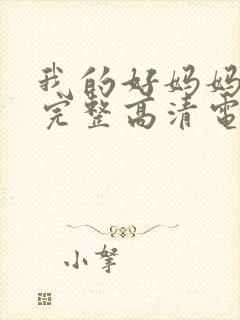 我的好妈妈
完整高清电
小拏